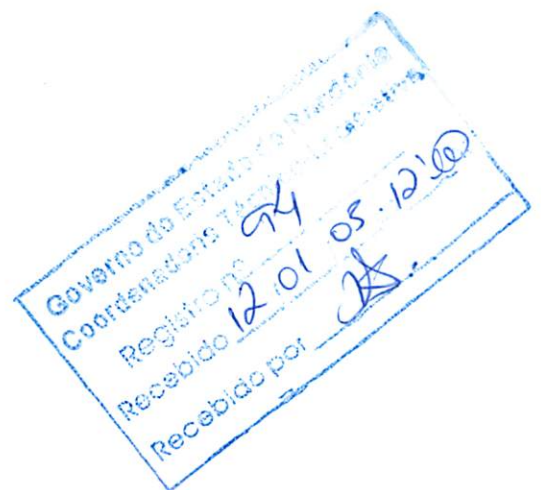 Governo do Estado de Rondônia
Coordenadoria
Registro nº 94
Recebido 12.01 05. 12:00
Recebido por